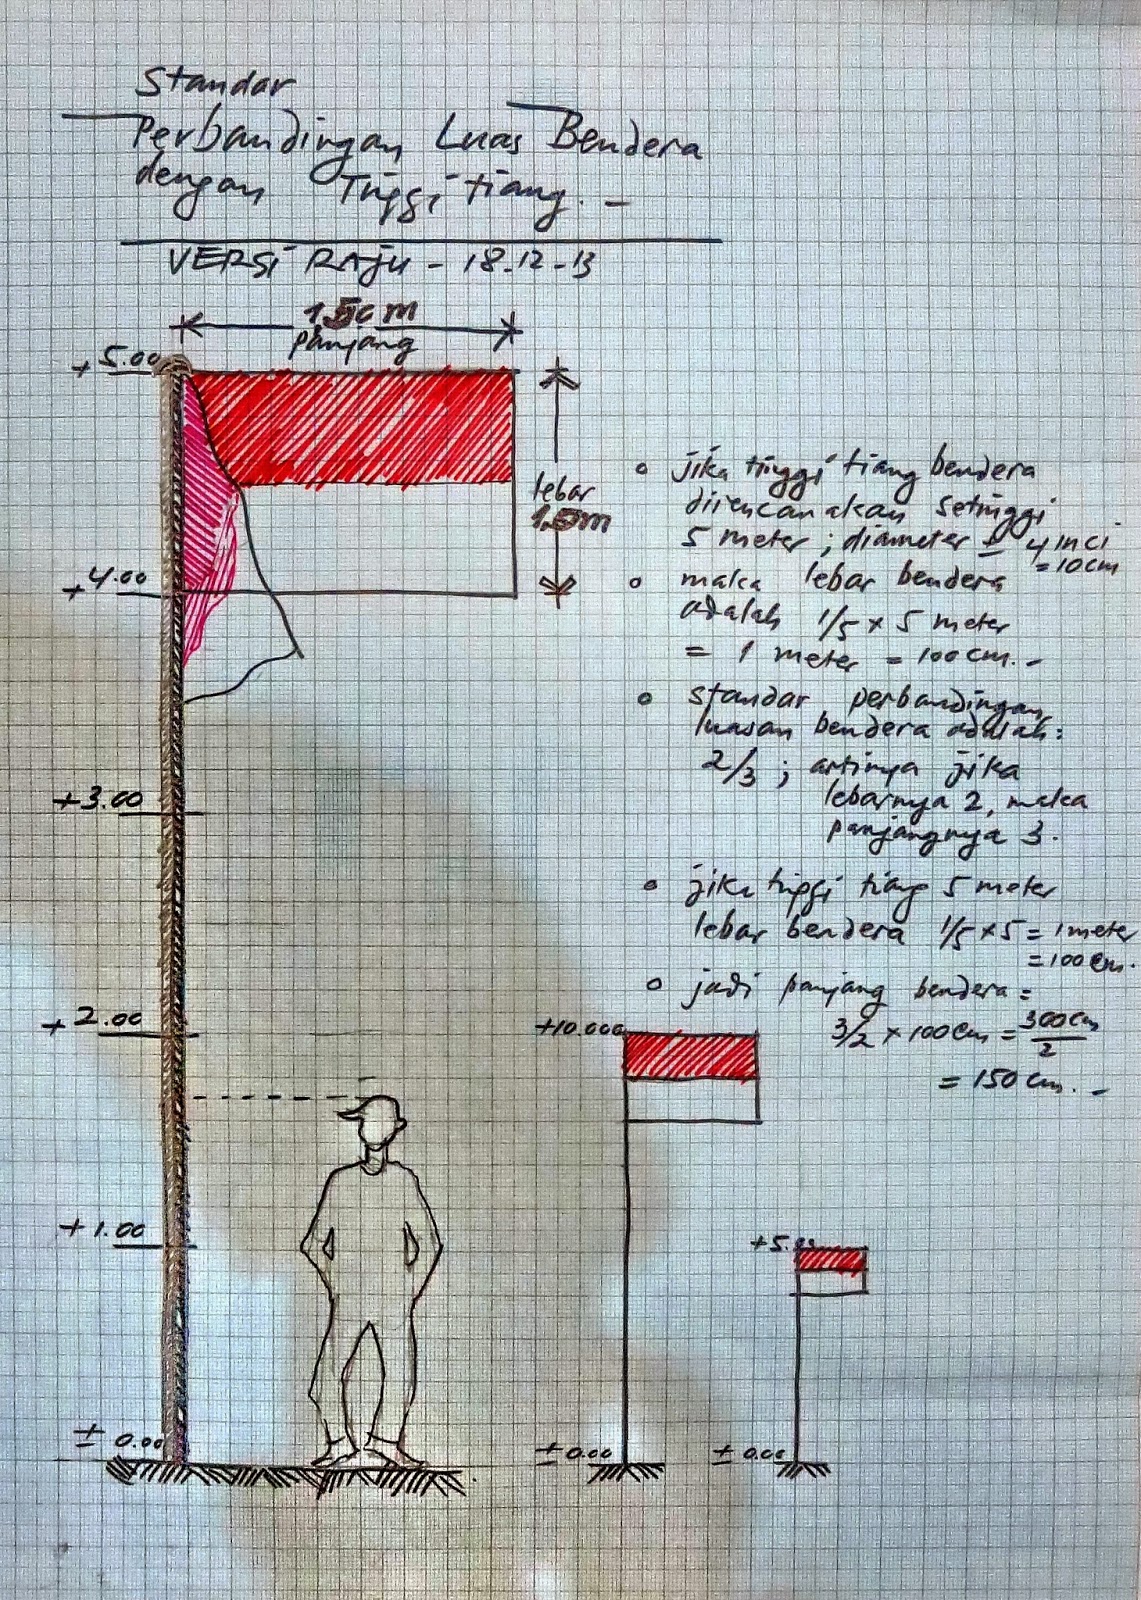 Standar
Perbandingan Luas Bendera
dengan Tinggi tiang. -
VERSI RAJU - 18-12-13
panjang
+ 5.00
lebar
+ 4.00
+3.00
+ 2.00
+ 1.00
± 0.00
jika tinggi tiang bendera
direncanakan setinggi
5 meter ; diameter ± 4 inci
= 10 cm
maka lebar bendera
adalah 1/5 x 5 meter
= 1 meter = 100 cm. -
standar perbandingan
luasan bendera adalah :
2/3 ; artinya jika
lebarnya 2, maka
panjangnya 3.
jika tinggi tiang 5 meter
lebar bendera 1/5 x 5 = 1 meter
= 100 cm.
jadi panjang bendera =
3/2 x 100 cm = 300 cm
2
= 150 cm. -
+10.000
± 0.00
± 0.00